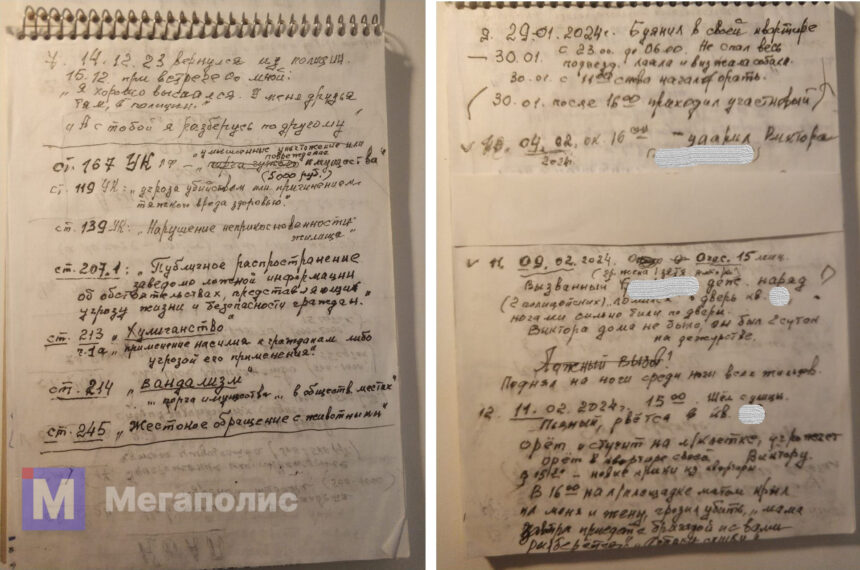 7. 14.12.23 вернулся из полиции.
15.12 при встрече со мной:
"Я хорошо выспался. У меня друзья
там, в полиции."
"А с тобой я разберусь по другому"
ст. 167 УК РФ - "умышленные уничтожение или
повреждение
имущества"
(5000 руб.)
ст. 119 УК: "угроза убийством или причинением
тяжкого вреда здоровью."
ст. 139 УК: "Нарушение неприкосновенности
жилища"
ст. 207.1: "Публичное распространение
заведомо ложной информации
об обстоятельствах, представляющих
угрозу жизни и безопасности граждан."
ст. 213 "Хулиганство"
ч.1а "применение насилия к гражданам либо
угрозой его применения".
ст. 214 "вандализм"
"... порча имущества ... в обществ. местах"
ст. 245 "Жестокое обращение с животными"
Мегаполис
9. 29.01.2024г. Буянил в своей квартире
- 30.01. с 23.00 до 06.00. Не спал весь
подъезд, лаяла и визжала собака.
30.01. с 11 стал орать.
(30.01. после 16 00 приходил участковый)
04.02. ок. 16 - ударил Виктора
2024г.
11. 09.02.2024. 0 час. 15 мин.
Вызванный деж. наряд
(2 полицейских) ломился в дверь кв.
ногами сильно били по двери.
Виктора дома не было, он был 2 суток
на дежурстве.
Ложный вызов!
Поднял на ноги среди ночи всех жильцов.
12. 11.02.2024г. 15 00. Шёл с улицы.
Пьяный, рвётся в кв.
орёт и стучит на л/клетке, угрожает
орёт в квартире своей Виктору.
В - новые крики из квартиры.
В 16 00 на л/площадке матом крыл
на меня и жену, грозил убить, "мама
завтра приедет бригадой и с вами
разберётся"